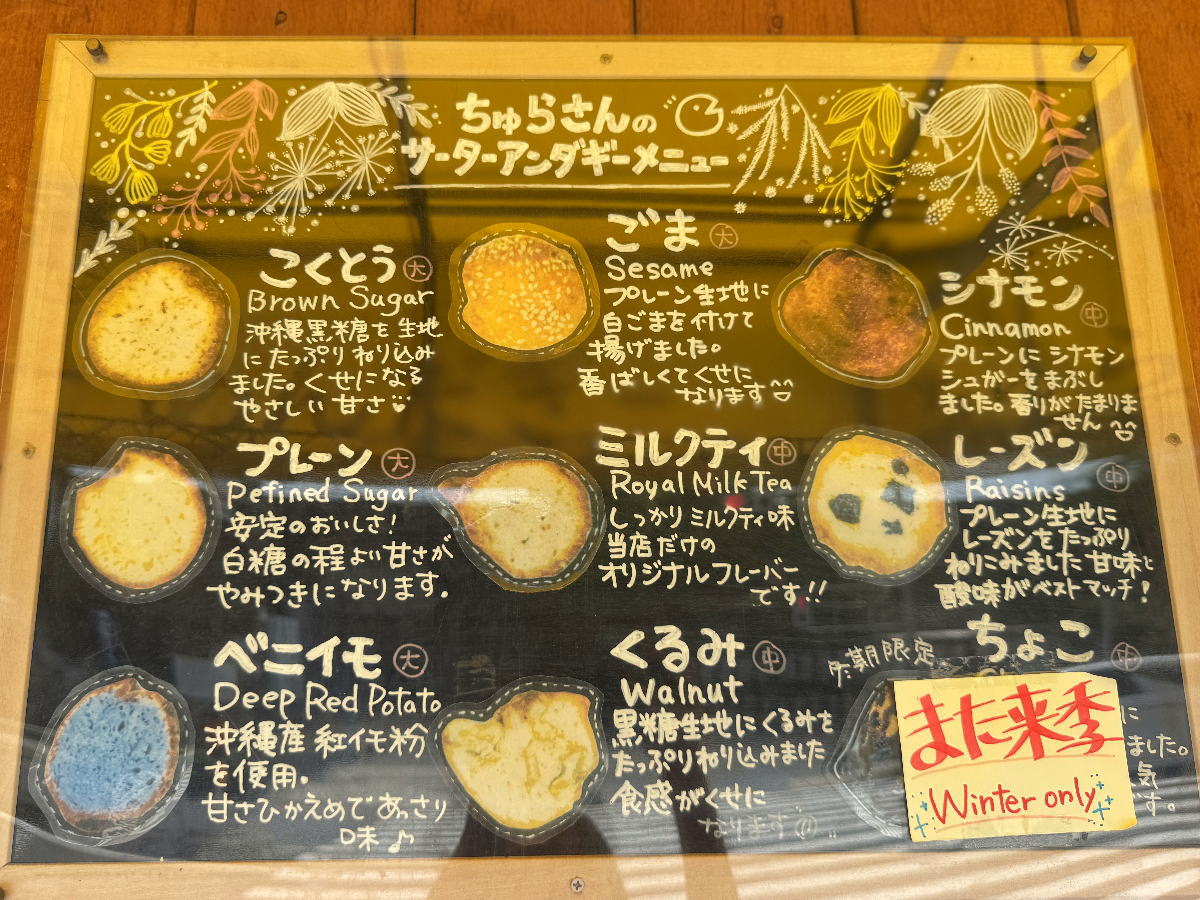 ちゅらさんの
サーターアンダギーメニュー
こくとう 大
Brown Sugar
沖縄黒糖を生地
にたっぷりねり込み
ました。くせになる
やさしい甘さ
ごま 大
Sesame
プレーン生地に
白ごまを付けて
揚げました。
香ばしくてくせに
なります
シナモン 中
Cinnamon
プレーンにシナモン
シュガーをまぶし
ました。香りがたまりま
せん
プレーン 大
Refined Sugar
安定のおいしさ!
白糖の程よい甘さが
やみつきになります。
ミルクティ 中
Royal Milk Tea
しっかりミルクティ味
当店だけの
オリジナルフレーバー
です!!
レーズン 中
Raisins
プレーン生地に
レーズンをたっぷり
ねりこみました甘味と
酸味がベストマッチ!
ベニイモ 大
Deep Red Potato
沖縄産 紅イモ粉
を使用.
甘さひかえめであっさり
味♪
くるみ 中
Walnut
黒糖生地にくるみを
たっぷりねり込みました
食感がくせに
なります
冬期限定
ちょこ 中
また来季
Winter only
に
ました。
気
す。